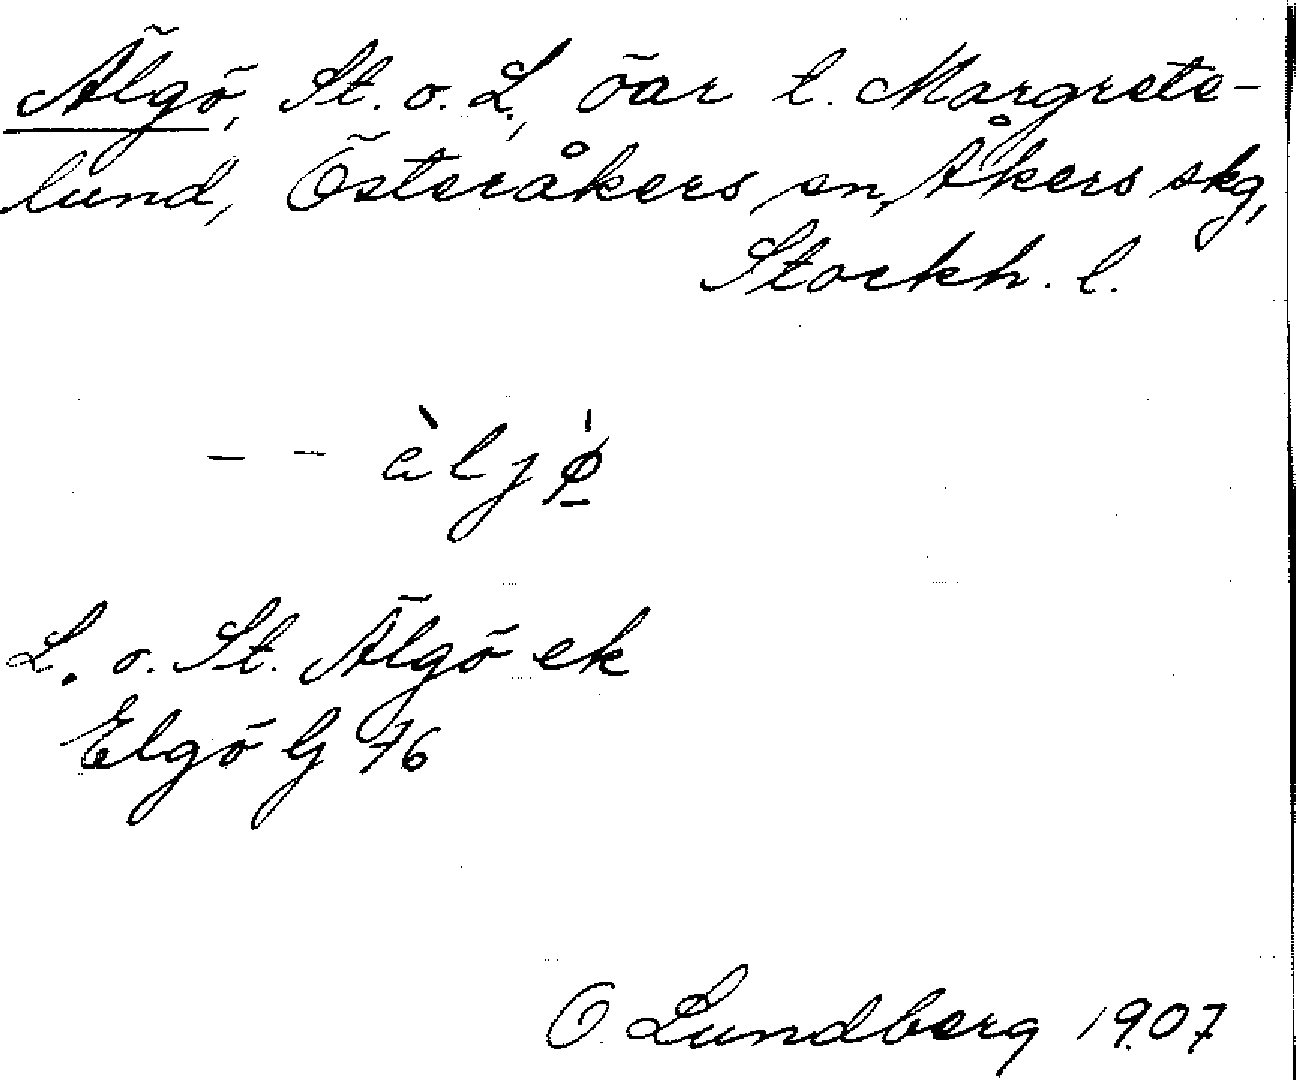 Älgö, St. o. L., öar t. Margrete-
lund, Österåkers sn, Åkers skg,
Stockh. l.
– – àljǿ̲
L. o. St. Älgö ek
Elgö G 76
O. Lundberg 1907